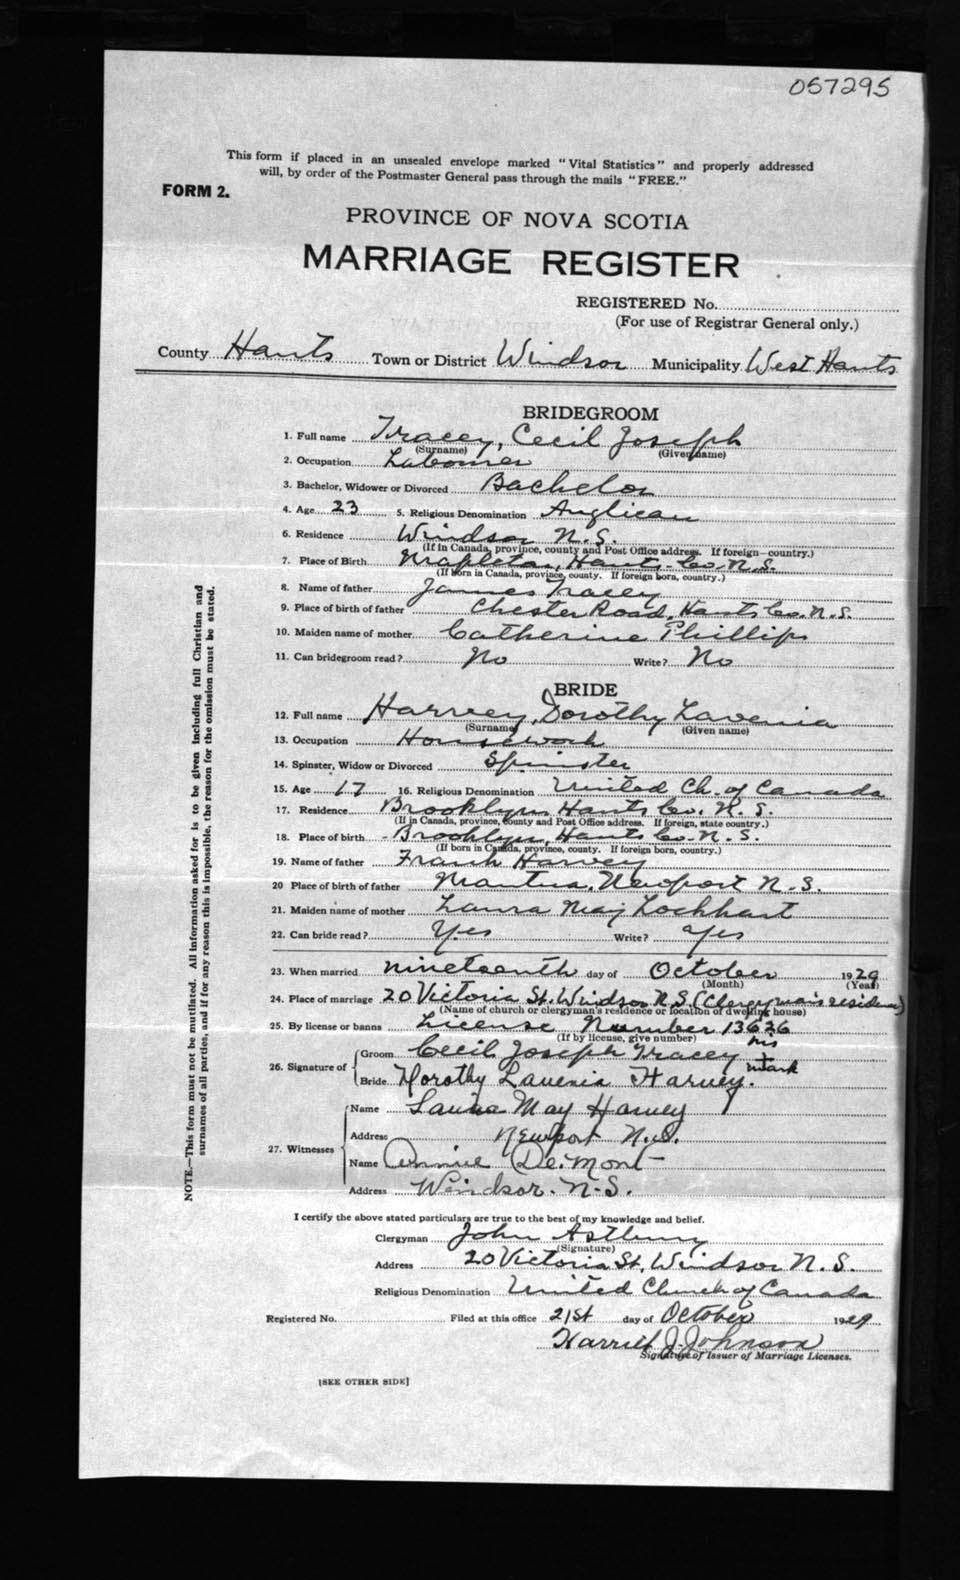 057295
This form if placed in an unsealed envelope marked "Vital Statistics" and properly addressed
will, by order of the Postmaster General pass through the mails "FREE."
FORM 2.
PROVINCE OF NOVA SCOTIA
MARRIAGE REGISTER
REGISTERED No.
(For use of Registrar General only.)
County Hants Town or District Windsor Municipality West Hants
BRIDEGROOM
1. Full name Tracey, Cecil Joseph
(Surname) (Given name)
2. Occupation Labourer
3. Bachelor, Widower or Divorced Bachelor
4. Age 23 5. Religious Denomination Anglican
6. Residence Windsor N.S.
(If in Canada, province, county and Post Office address. If foreign—country.)
7. Place of Birth Mapleton, Hants Co. N.S.
(If born in Canada, province, county. If foreign born, country.)
8. Name of father James Tracey
9. Place of birth of father Chester Road, Hants Co. N.S.
10. Maiden name of mother Catherine Phillips
11. Can bridegroom read? No Write? No
BRIDE
12. Full name Harvey, Dorothy Lavenia
(Surname) (Given name)
13. Occupation Housework
14. Spinster, Widow or Divorced Spinster
15. Age 17 16. Religious Denomination United Ch. of Canada
17. Residence Brooklyn Hants Co. N.S.
(If in Canada, province, county and Post Office address. If foreign, state country.)
18. Place of birth Brooklyn, Hants Co. N.S.
(If born in Canada, province, county. If foreign born, country.)
19. Name of father Frank Harvey
20 Place of birth of father Mantua, Newport N.S.
21. Maiden name of mother Laura May Lockhart
22. Can bride read? Yes Write? Yes
23. When married nineteenth day of October 1929
(Month) (Year)
24. Place of marriage 20 Victoria St. Windsor N.S. (Clergyman's residence)
(Name of church or clergyman's residence or location of dwelling house)
25. By license or banns License Number 13626
(If by license, give number)
26. Signature of Groom Cecil Joseph Tracey his x mark
Bride Dorothy Lavenia Harvey.
27. Witnesses
Name Laura May Harvey
Address Newport N.S.
Name Annie De.Mont
Address Windsor. N.S.
I certify the above stated particulars are true to the best of my knowledge and belief.
Clergyman John Astbury
(Signature)
Address 20 Victoria St. Windsor N.S.
Religious Denomination United Church of Canada
Registered No. Filed at this office 21st day of October 1929
Harriet J. Johnson
Signature of Issuer of Marriage Licenses.
[SEE OTHER SIDE]
NOTE.—This form must not be mutilated. All information asked for is to be given including full Christian and
surnames of all parties, and if for any reason this is impossible, the reason for the omission must be stated.